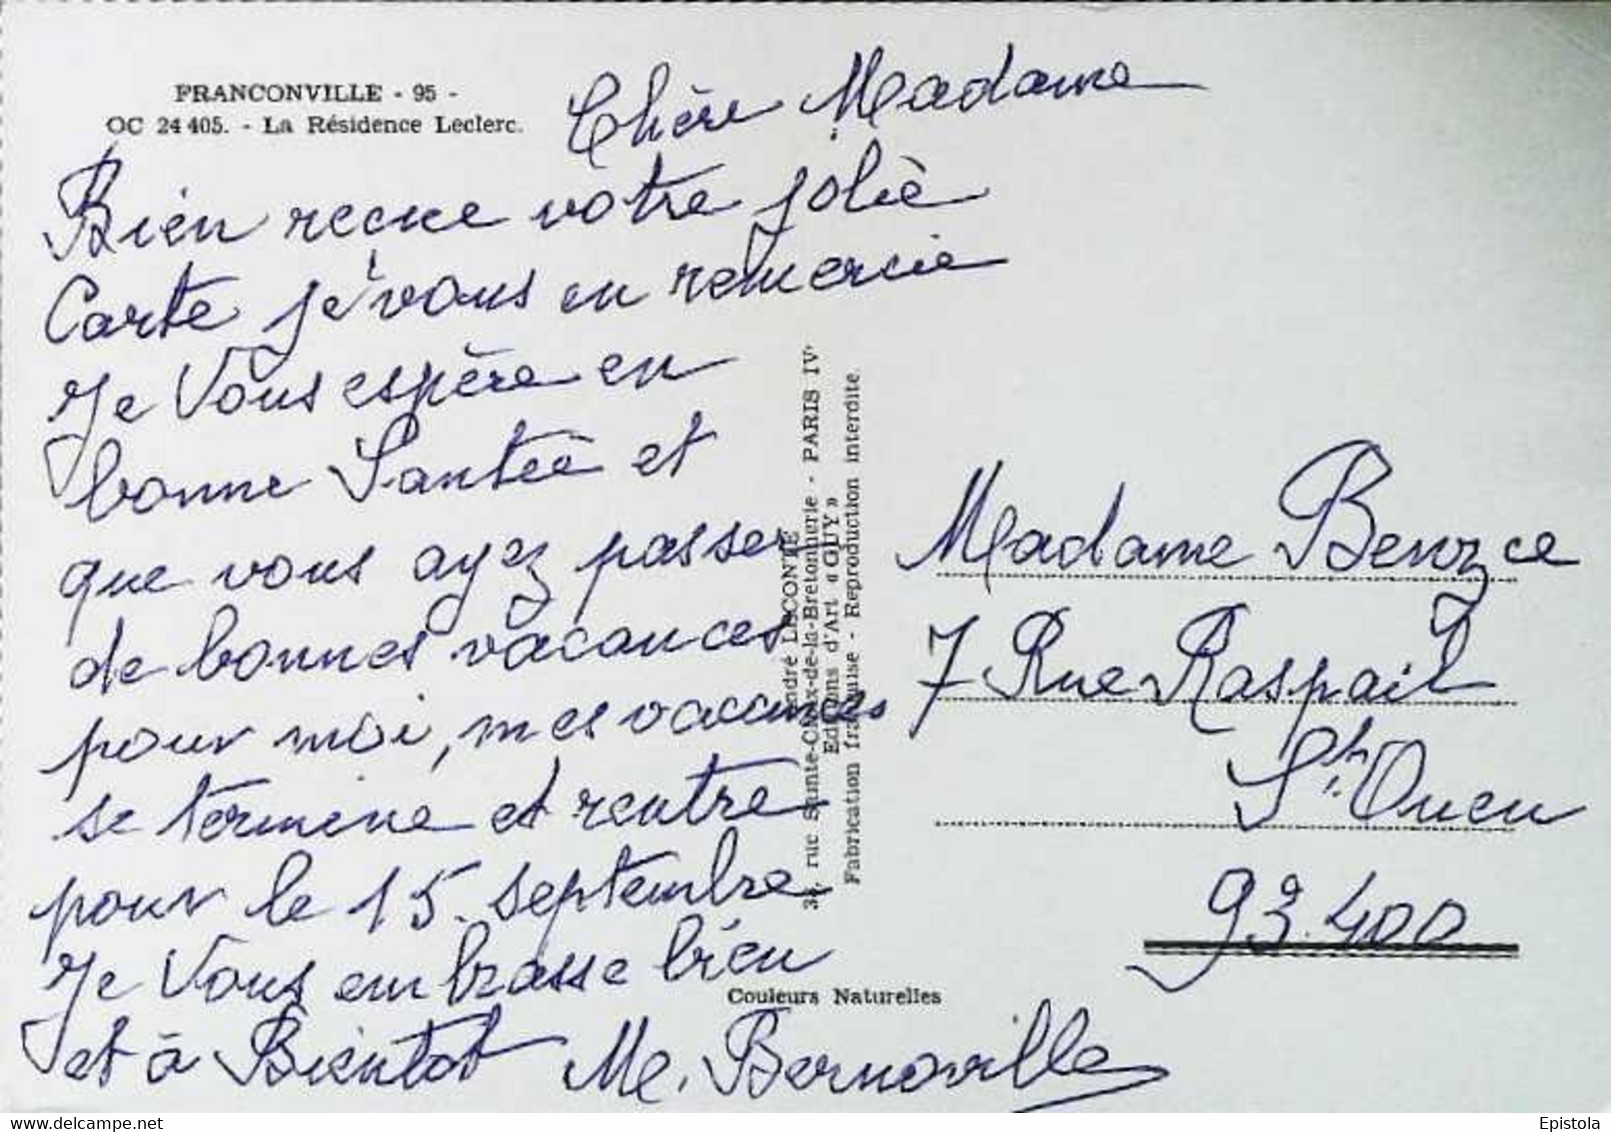 FRANCONVILLE - 95 -
OC 24 405. - La Résidence Leclerc.
Chère Madame
Bien reçue votre jolie
Carte je vous en remercie
Je Vous espère en
bonne Santée et
que vous ayez passer
de bonnes vacances
pour moi, mes vacances
se termine et rentre
pour le 15 septembre
Je Vous embrasse bien
et à Bientot Me. Bernoville
André LECONTE
rue Sainte-Croix-de-la-Bretonnerie - PARIS IVe
Editions d'Art « GUY »
Fabrication française - Reproduction interdite
Couleurs Naturelles
Madame
7 Rue Raspail
St Ouen
93.400
Epistola